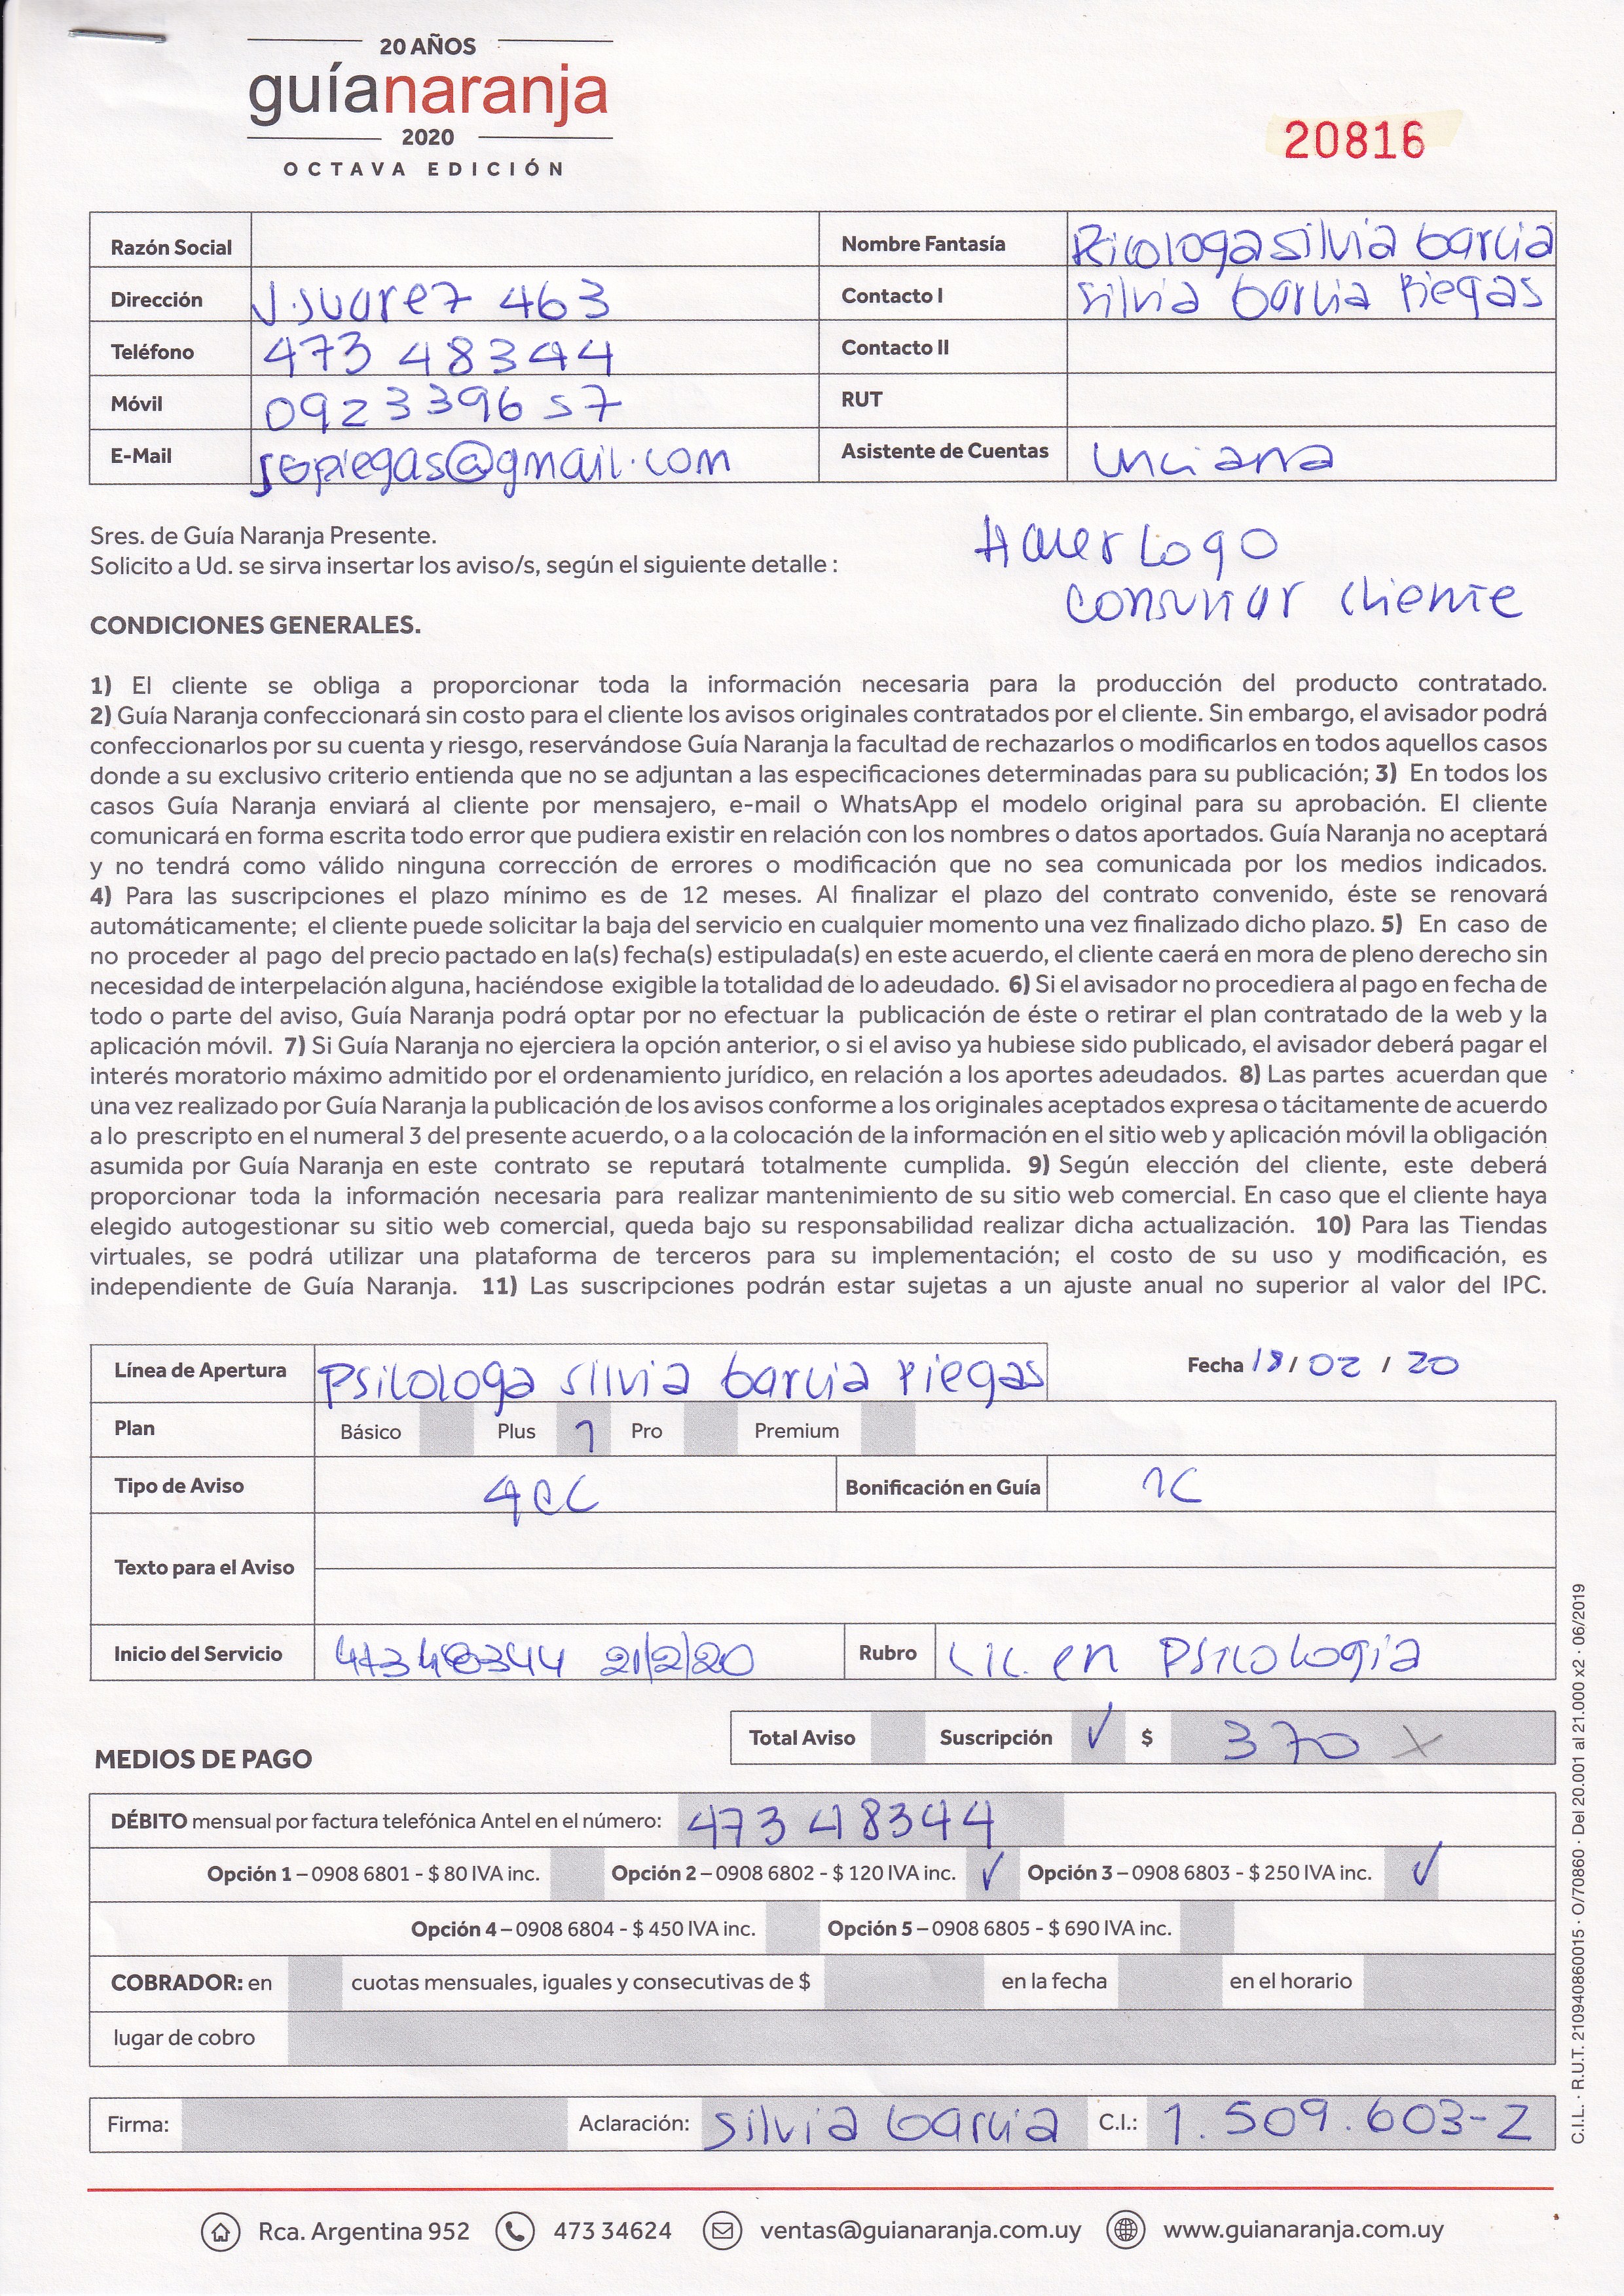 20 AÑOS
guíanaranja
2020
OCTAVA EDICIÓN
20816
Razón Social
Nombre Fantasía Psicologa Silvia Garcia
Dirección J. Suarez 463
Contacto I Silvia Garcia Piegas
Teléfono 473 48344
Contacto II
Móvil 092339657
RUT
E-Mail sgpiegas@gmail.com
Asistente de Cuentas Luciana
Sres. de Guía Naranja Presente.
Solicito a Ud. se sirva insertar los aviso/s, según el siguiente detalle :
Hacer Logo
consultar cliente
CONDICIONES GENERALES.
1) El cliente se obliga a proporcionar toda la información necesaria para la producción del producto contratado.
2) Guía Naranja confeccionará sin costo para el cliente los avisos originales contratados por el cliente. Sin embargo, el avisador podrá
confeccionarlos por su cuenta y riesgo, reservándose Guía Naranja la facultad de rechazarlos o modificarlos en todos aquellos casos
donde a su exclusivo criterio entienda que no se adjuntan a las especificaciones determinadas para su publicación; 3) En todos los
casos Guía Naranja enviará al cliente por mensajero, e-mail o WhatsApp el modelo original para su aprobación. El cliente
comunicará en forma escrita todo error que pudiera existir en relación con los nombres o datos aportados. Guía Naranja no aceptará
y no tendrá como válido ninguna corrección de errores o modificación que no sea comunicada por los medios indicados.
4) Para las suscripciones el plazo mínimo es de 12 meses. Al finalizar el plazo del contrato convenido, éste se renovará
automáticamente; el cliente puede solicitar la baja del servicio en cualquier momento una vez finalizado dicho plazo. 5) En caso de
no proceder al pago del precio pactado en la(s) fecha(s) estipulada(s) en este acuerdo, el cliente caerá en mora de pleno derecho sin
necesidad de interpelación alguna, haciéndose exigible la totalidad de lo adeudado. 6) Si el avisador no procediera al pago en fecha de
todo o parte del aviso, Guía Naranja podrá optar por no efectuar la publicación de éste o retirar el plan contratado de la web y la
aplicación móvil. 7) Si Guía Naranja no ejerciera la opción anterior, o si el aviso ya hubiese sido publicado, el avisador deberá pagar el
interés moratorio máximo admitido por el ordenamiento jurídico, en relación a los aportes adeudados. 8) Las partes acuerdan que
una vez realizado por Guía Naranja la publicación de los avisos conforme a los originales aceptados expresa o tácitamente de acuerdo
a lo prescripto en el numeral 3 del presente acuerdo, o a la colocación de la información en el sitio web y aplicación móvil la obligación
asumida por Guía Naranja en este contrato se reputará totalmente cumplida. 9) Según elección del cliente, este deberá
proporcionar toda la información necesaria para realizar mantenimiento de su sitio web comercial. En caso que el cliente haya
elegido autogestionar su sitio web comercial, queda bajo su responsabilidad realizar dicha actualización. 10) Para las Tiendas
virtuales, se podrá utilizar una plataforma de terceros para su implementación; el costo de su uso y modificación, es
independiente de Guía Naranja. 11) Las suscripciones podrán estar sujetas a un ajuste anual no superior al valor del IPC.
Línea de Apertura Psicologa Silvia Garcia Piegas
Fecha 18 / 02 / 20
Plan Básico Plus 1 Pro Premium
Tipo de Aviso 4CC
Bonificación en Guía 1C
Texto para el Aviso
Inicio del Servicio 47348344 21/2/20
Rubro Lic. en Psicologia
Total Aviso Suscripción ✓ $ 370 X
MEDIOS DE PAGO
DÉBITO mensual por factura telefónica Antel en el número: 473 48344
Opción 1 – 0908 6801 - $ 80 IVA inc. Opción 2 – 0908 6802 - $ 120 IVA inc. ✓ Opción 3 – 0908 6803 - $ 250 IVA inc. ✓
Opción 4 – 0908 6804 - $ 450 IVA inc. Opción 5 – 0908 6805 - $ 690 IVA inc.
COBRADOR: en cuotas mensuales, iguales y consecutivas de $ en la fecha en el horario
lugar de cobro
Firma: Aclaración: Silvia Garcia C.I.: 1.509.603-2
C.I.L. · R.U.T. 210940860015 · O/70860 · Del 20.001 al 21.000 x2 · 06/2019
Rca. Argentina 952 473 34624 ventas@guianaranja.com.uy www.guianaranja.com.uy